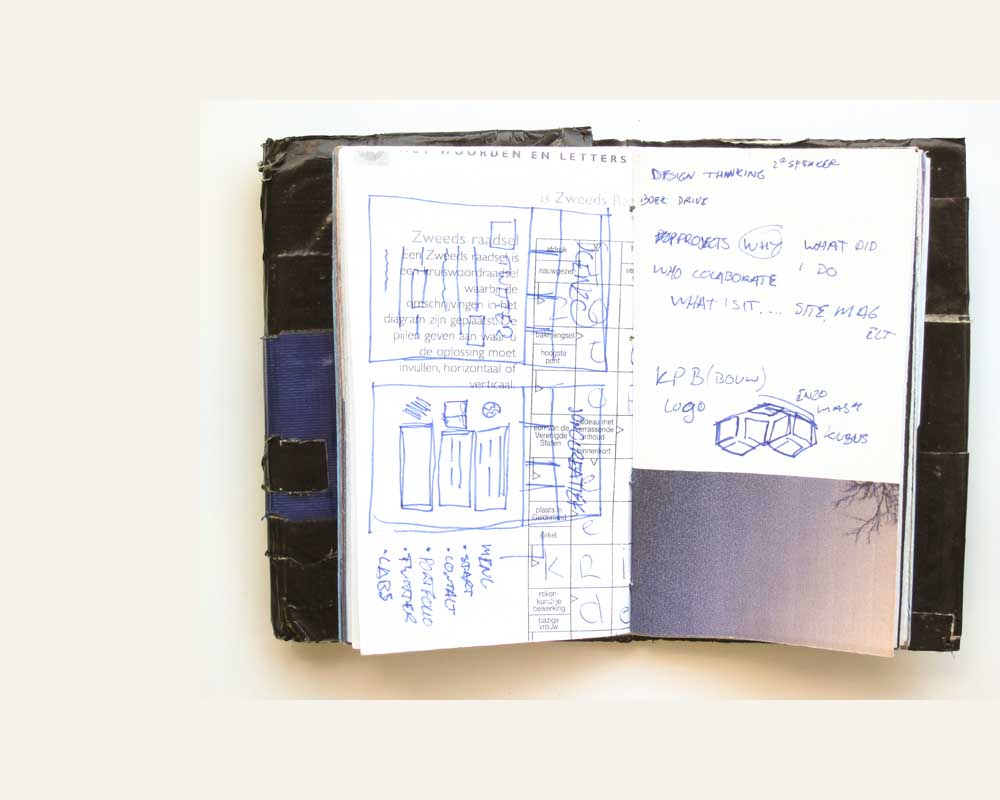 WOORDEN EN LETTERS
Zweeds raadsel
Een Zweeds raadsel is
een kruiswoordraadsel
waarbij de
omschrijvingen in het
diagram zijn geplaatst. De
pijlen geven aan waar u
de oplossing moet
invullen, horizontaal of
verticaal.
is Zweeds
afdruk
nauwgezet
bakmengsel
hoogste
punt
een van de
Verenigde
Staten
cadeau met
verrassende
inhoud
binnenkort
plaats in
Gelderland
cirkel
reken-
kundige
bewerking
bazige
vrouw
K R i
e
d e
MENU
• START
• CONTACT
• PORTFOLIO
• TWITTER
• LABS
2e SPEAKER
DESIGN THINKING
BOEK DRIVE
PROJECTS WHY WHAT DID
I DO
WHO COLABORATE
WHAT IS IT.... SITE, MAG
ECT
KPB (BOUW)
LOGO
ENZO
KUBUS